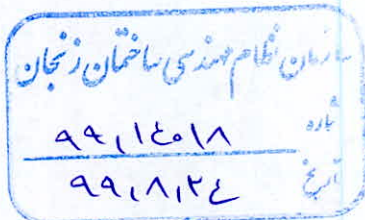 سازمان نظام مهندسی ساختمان زنجان
شماره ۹۹,۱٤۰۱۸
تاریخ ۹۹,۸,۲٤